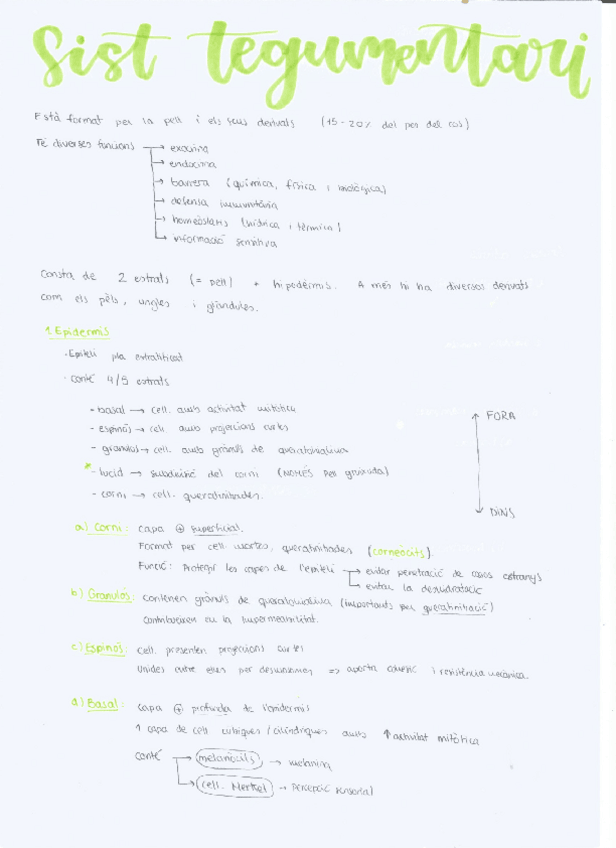 Sist tegumentari
Està format per la pell i els seus derivats (15-20% del pes del cos)
Té diverses funcions → exocrina
→ endocrina
→ barrera (química, física i biològica)
→ defensa immunitària
→ homeòstasis (hídrica i tèrmica)
→ informació sensitiva
Consta de 2 estrats (= pell) + hipodèrmis. A més hi ha diversos derivats
com els pèls, ungles i glàndules.
1. Epidermis
· Epiteli pla estratificat
· Conté 4/5 estrats
- basal → cell. amb activitat mitòtica
- espinós → cell. amb projeccions curtes
- granulós → cell. amb grànuls de queratohialina
* - lucid → subdivisió del corni (NOMÉS pell gruixuda)
- corni → cell. queratinitzades.
↑ FORA
↓ DINS
a) Corni: capa ⊕ superficial.
Format per cell. mortes, queratinitzades (corneòcits).
Funció: Protegir les capes de l'epiteli → evitar penetració de cossos estranys
→ evitar la deshidratació
b) Granulós: contenen grànuls de queratohialina (importants per queratinització)
Contribueixen en la impermeabilitat.
c) Espinós: cell. presenten projeccions curtes
Unides entre elles per desmosomes ⇒ aporta cohesió i resistència mecànica.
d) Basal: capa ⊕ profunda de l'epidermis
1 capa de cell cubiques / cilíndriques amb ↑ activitat mitòtica
Conté → melanòcits → melanina
→ cell. Merkel → Percepció sensorial